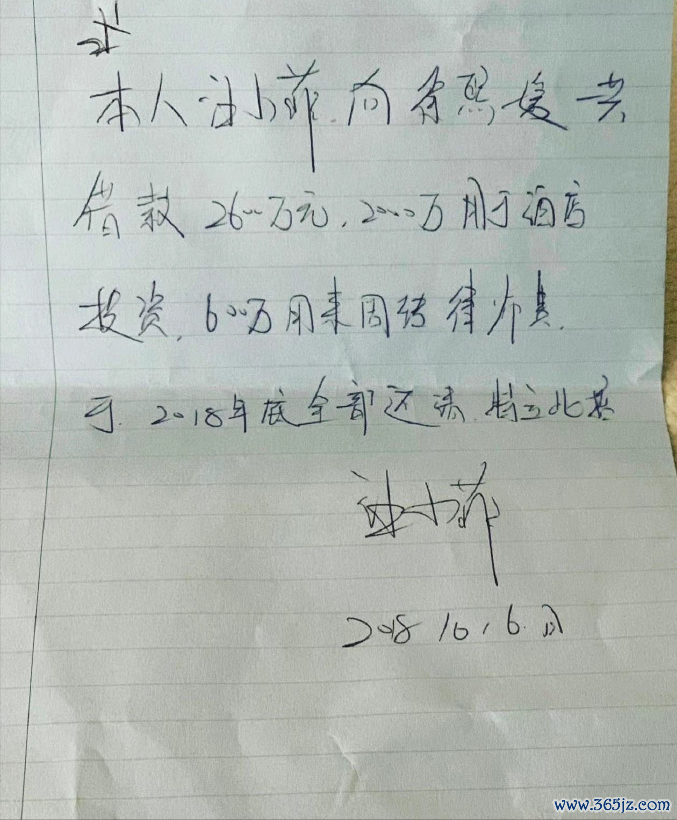 本人汪小菲.向徐熙媛共
借款2600万元.2000万用于酒店
投资.600万用来周转律师费.
于.2018年底全部还清.特立此案
汪小菲
2018 10.6.
www.365jz.com